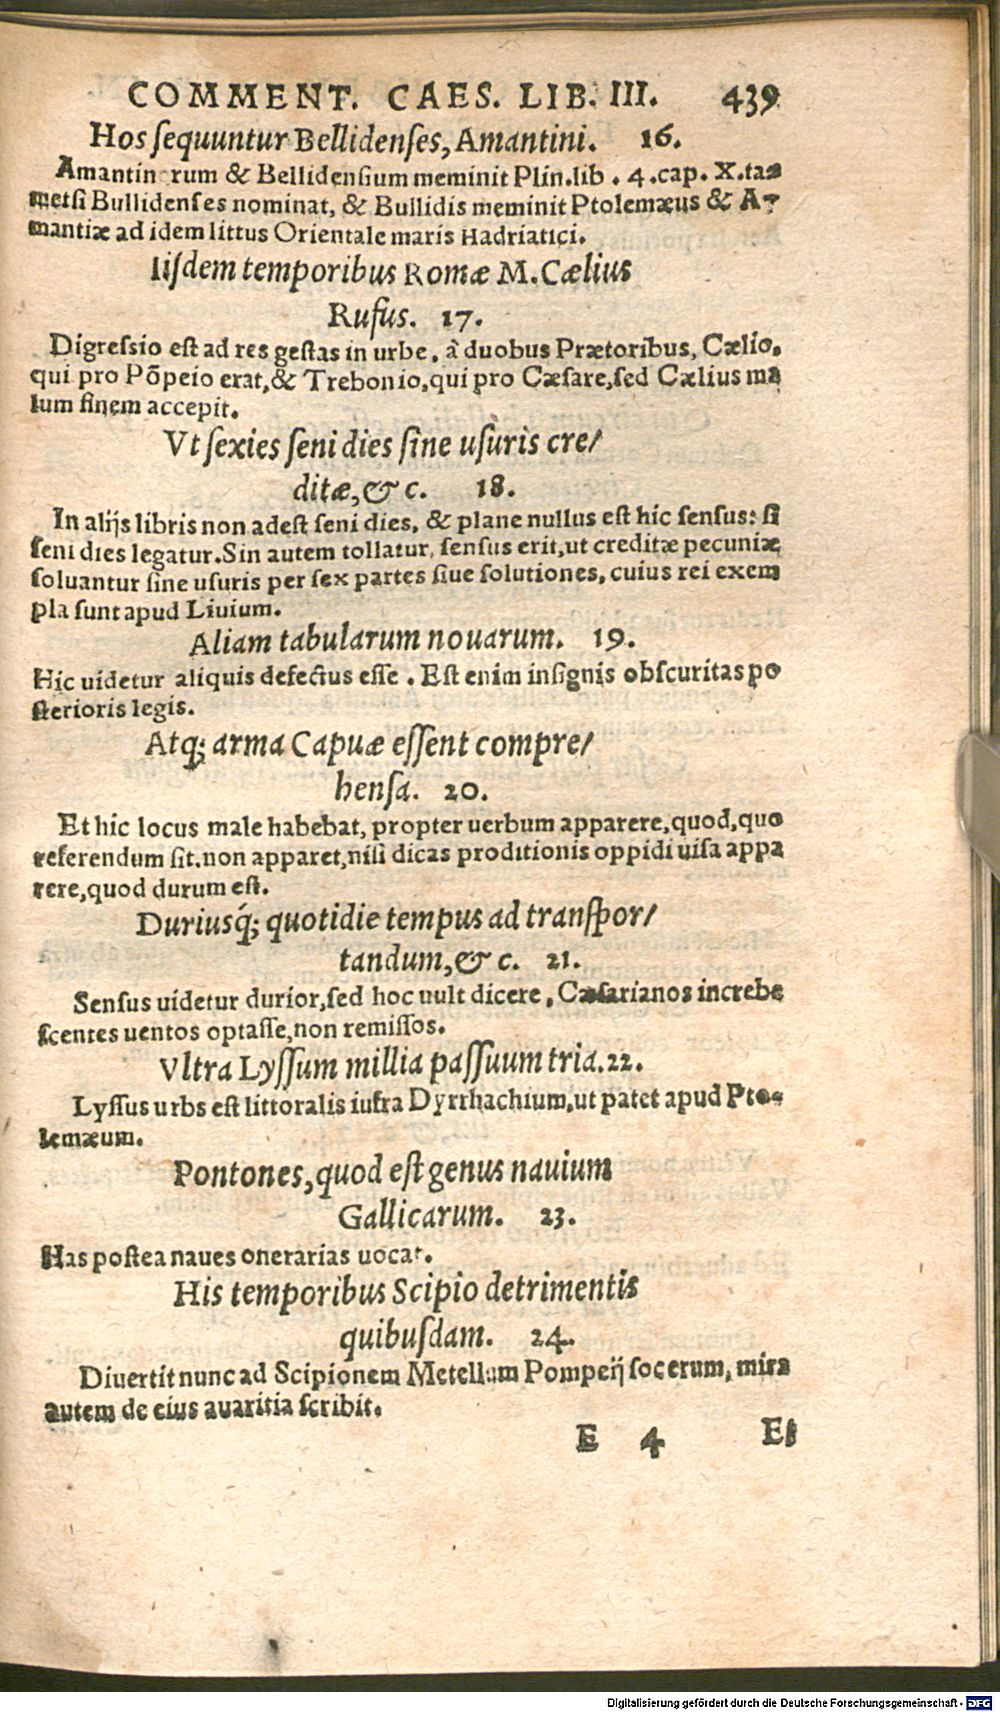 COMMENT. CAES. LIB. III. 439
Hos sequuntur Bellidenses, Amantini. 16.
Amantinorum & Bellidensium meminit Plin.lib . 4 .cap. X.ta-
metsi Bullidenses nominat, & Bullidis meminit Ptolemæus & A-
mantiæ ad idem littus Orientale maris Hadriatici.
Iisdem temporibus Romæ M. Cælius
Rufus. 17.
Digressio est ad res gestas in urbe, à duobus Prætoribus, Cælio,
qui pro Põpeio erat,& Trebonio,qui pro Cæsare,sed Cælius ma
lum finem accepit.
Vt sexies seni dies sine usuris cre/
ditæ,& c. 18.
In alijs libris non adest seni dies, & plane nullus est hic sensus: si
seni dies legatur.Sin autem tollatur, sensus erit,ut creditæ pecuniæ
soluantur sine usuris per sex partes siue solutiones, cuius rei exem
pla sunt apud Liuium.
Aliam tabularum nouarum. 19.
Hic uidetur aliquis defectus esse . Est enim insignis obscuritas po
sterioris legis.
Atq; arma Capuæ essent compre/
hensa. 20.
Et hic locus male habebat, propter uerbum apparere,quod,quo
referendum sit.non apparet,nisi dicas proditionis oppidi uisa appa
rere,quod durum est.
Duriusq́; quotidie tempus ad transpor/
tandum,& c. 21.
Sensus uidetur durior,sed hoc uult dicere, Cæsarianos increbe
scentes uentos optasse,non remissos.
Vltra Lyssum millia passuum tria.22.
Lyssus urbs est littoralis iufra Dyrrhachium,ut patet apud Pto-
lemæum.
Pontones,quod est genus nauium
Gallicarum. 23.
Has postea naues onerarias uocat.
His temporibus Scipio detrimentis
quibusdam. 24.
Diuertit nunc ad Scipionem Metellum Pompeij socerum, mira
autem de eius auaritia scribit.
E 4 Et
Digitalisierung gefördert durch die Deutsche Forschungsgemeinschaft - DFG